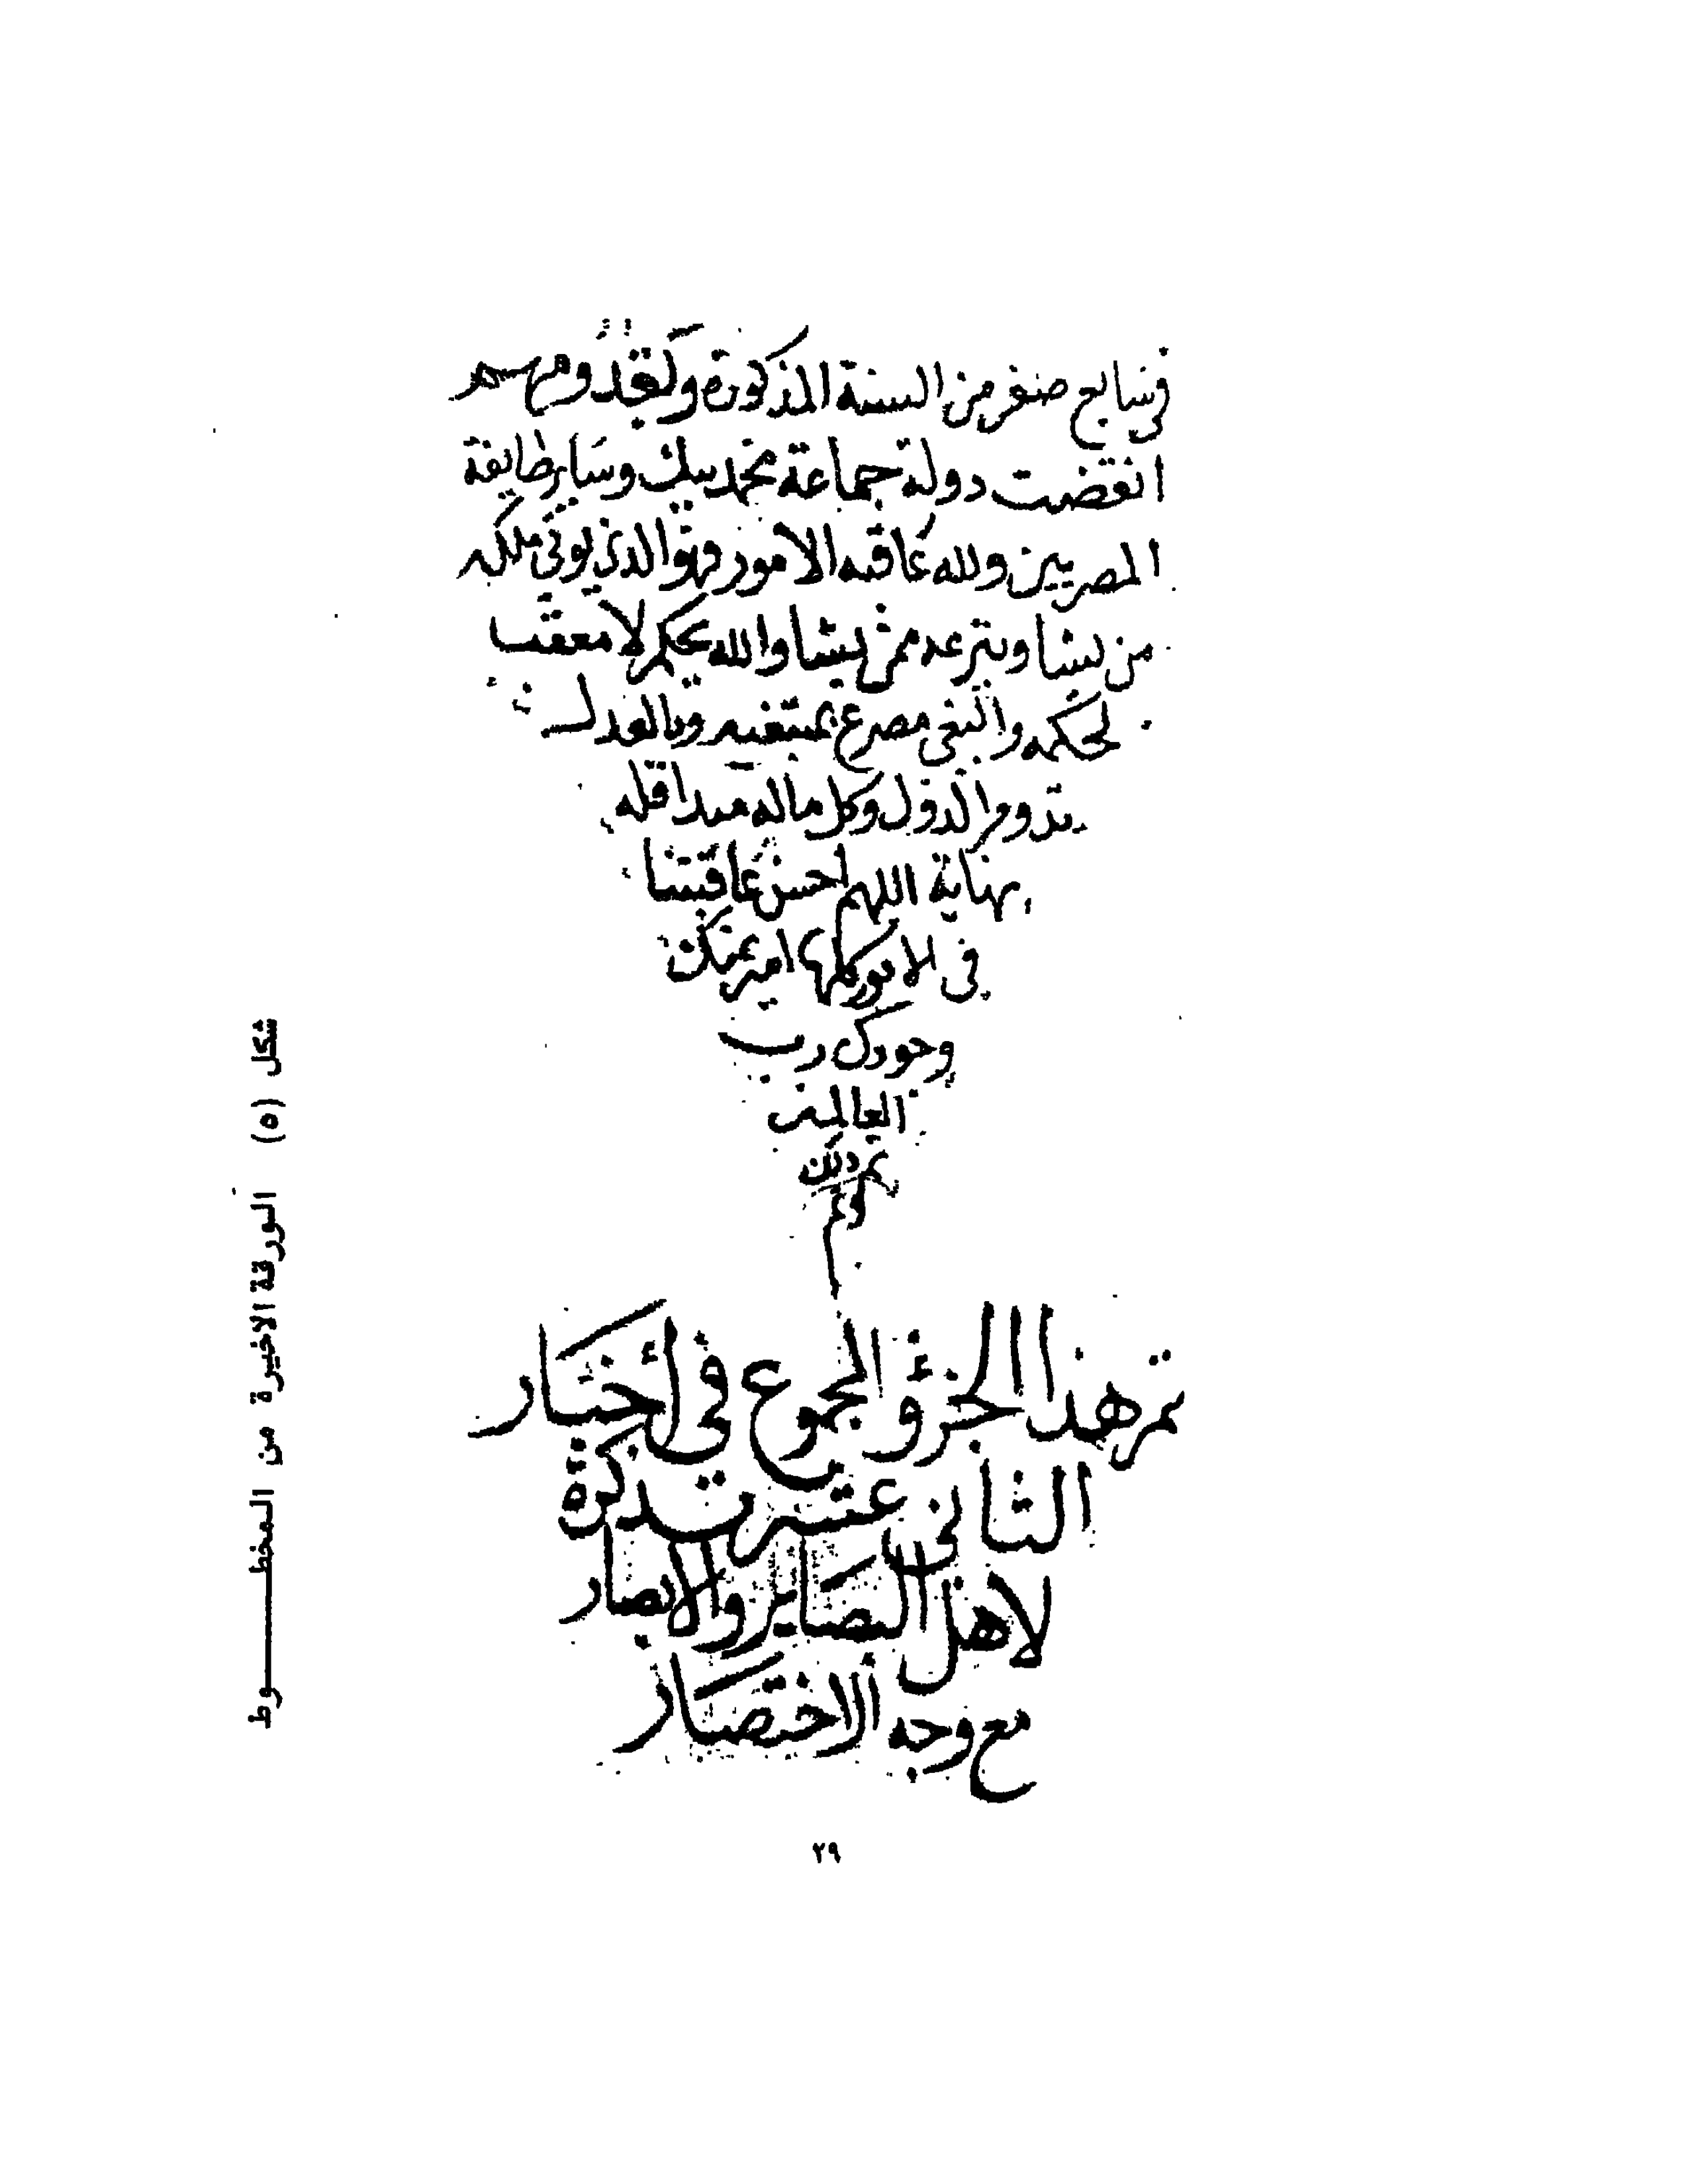 في سابع صفر من السنة المذكورة وبقدومهم
انقضت دولة جماعة محمد بيك وساير طايفة
المصريين ولله عاقبه الامور وهو الذي يوتي ملكه
من يشا وينزعه ممن يشا والله يحكم لا معقب
لحكمه والبغي مصرع مبتغيه وبالعدل
تدوم الدول وكل ماله مبدا فله
نهاية اللهم احسن عاقبتنا
في الامور كلها امين بمنك
وجودك رب
العالمين
تم ذلك
تم هذا الجزؤ المجموع في أخبار
الثاني عشر تدكرة
لاهل البصاير والابصار
مع وجه الاختصار
شكل (٥) الورقة الاخيرة من المخطـــــــوط
٢٩